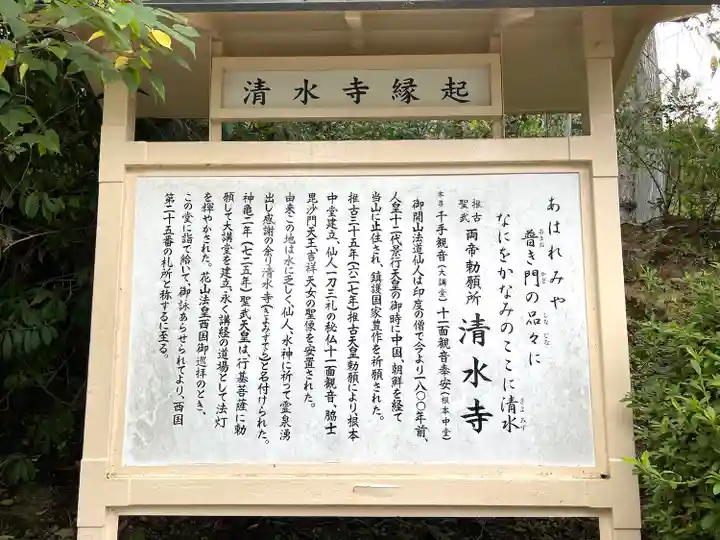 清水寺縁起
あはれみや
普き門の品々に
なにをかなみのここに清水
推古
聖武 両帝勅願所 清水寺
本尊 千手観音(大講堂)十一面観音奉安(根本中堂)
御開山法道仙人は印度の僧で今より一八〇〇年前、
人皇十二代景行天皇の御時に中国、朝鮮を経て
当山に止住され、鎮護国家豊作を祈願された。
推古三十五年(六二七年)推古天皇勅願により、根本
中堂建立、仙人一刀三礼の秘仏十一面観音、脇士
毘沙門天王、吉祥天女の聖像を安置された。
由来この地は水に乏しく仙人、水神に祈って霊泉湧
出し感謝の余り清水寺(きよみずでら)と名付けられた。
神亀二年(七二五年)聖武天皇は、行基菩薩に勅
願して大講堂を建立、永く講経の道場として法灯
を輝やかされた。花山法皇西国御巡拝のとき、
この堂に詣で給いて、御詠あらせられてより、西国
第二十五番の札所と称するに至る。